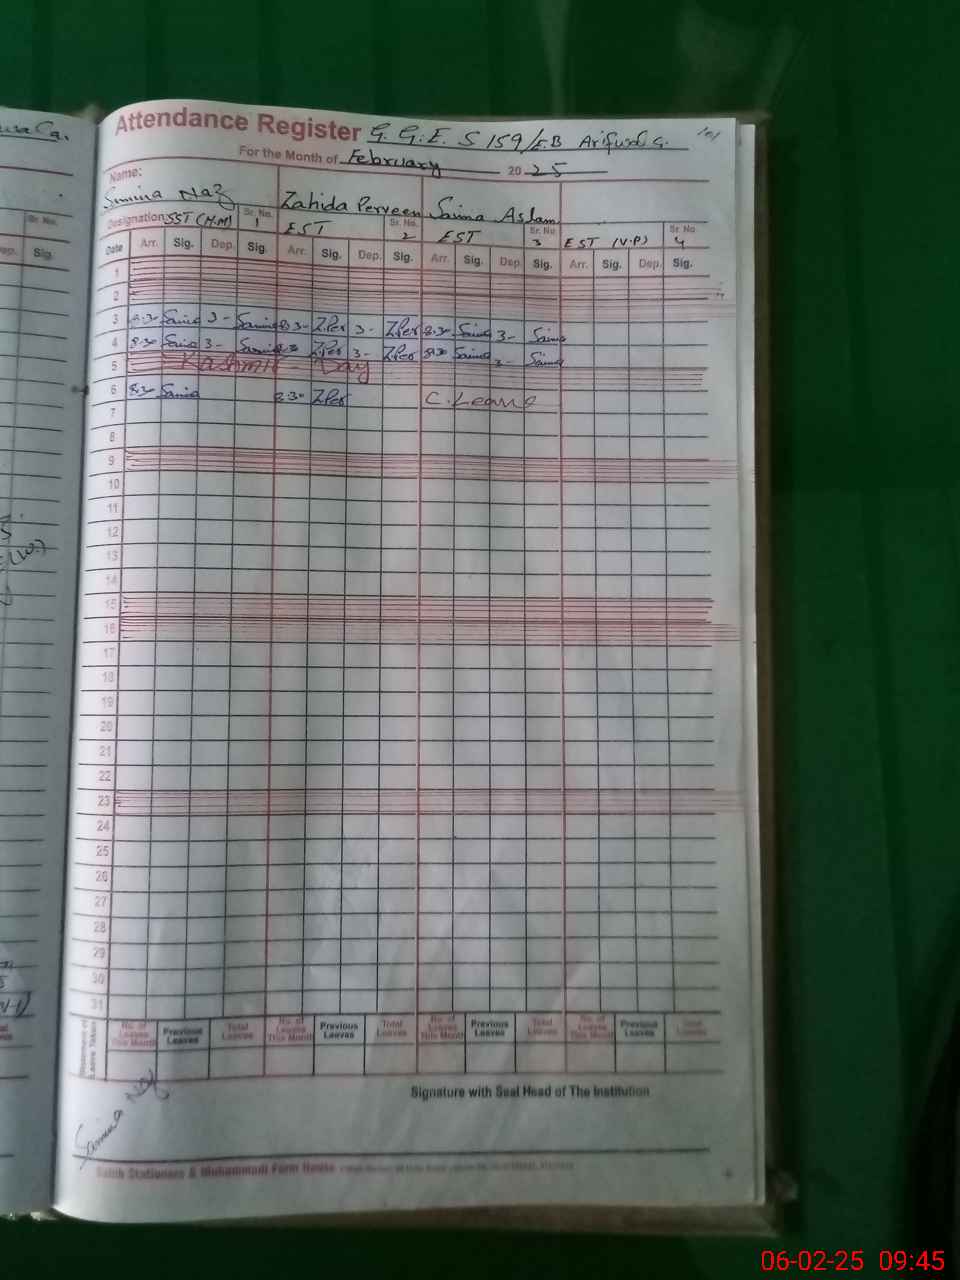 Attendance Register G.G.E.S 159/EB Arifwala.
For the Month of February 20 25
Name:
Samina Naz Zahida Perveen Saima Aslam
Designation SST (H.M) Sr. No. 1 EST Sr. No. 2 EST Sr. No. 3 EST (V.P) Sr. No. 4
Date Arr. Sig. Dep. Sig. Arr. Sig. Dep. Sig. Arr. Sig. Dep. Sig. Arr. Sig. Dep. Sig.
1
2
3 8.30 Samina 3- Samina 8.30 Z.Per 3- Z.Per 8.30 Saima 3- Saima
4 8.30 Samina 3- Samina 8.30 Z.Per 3- Z.Per 8.30 Saima 3- Saima
5 Kashmir Day
6 8.30 Samina 8.30 Z.Per C.Leave
7
8
9
10
11
12
13
14
15
16
17
18
19
20
21
22
23
24
25
26
27
28
29
30
31
No. of Leaves This Month Previous Leaves Total Leaves No. of Leaves This Month Previous Leaves Total Leaves No. of Leaves This Month Previous Leaves Total Leaves No. of Leaves This Month Previous Leaves Total Leaves
Signature with Seal Head of The Institution
Samina Naz
Stationers & Muhammadi Form House
Sr. No.
Dep. Sig.
06-02-25 09:45